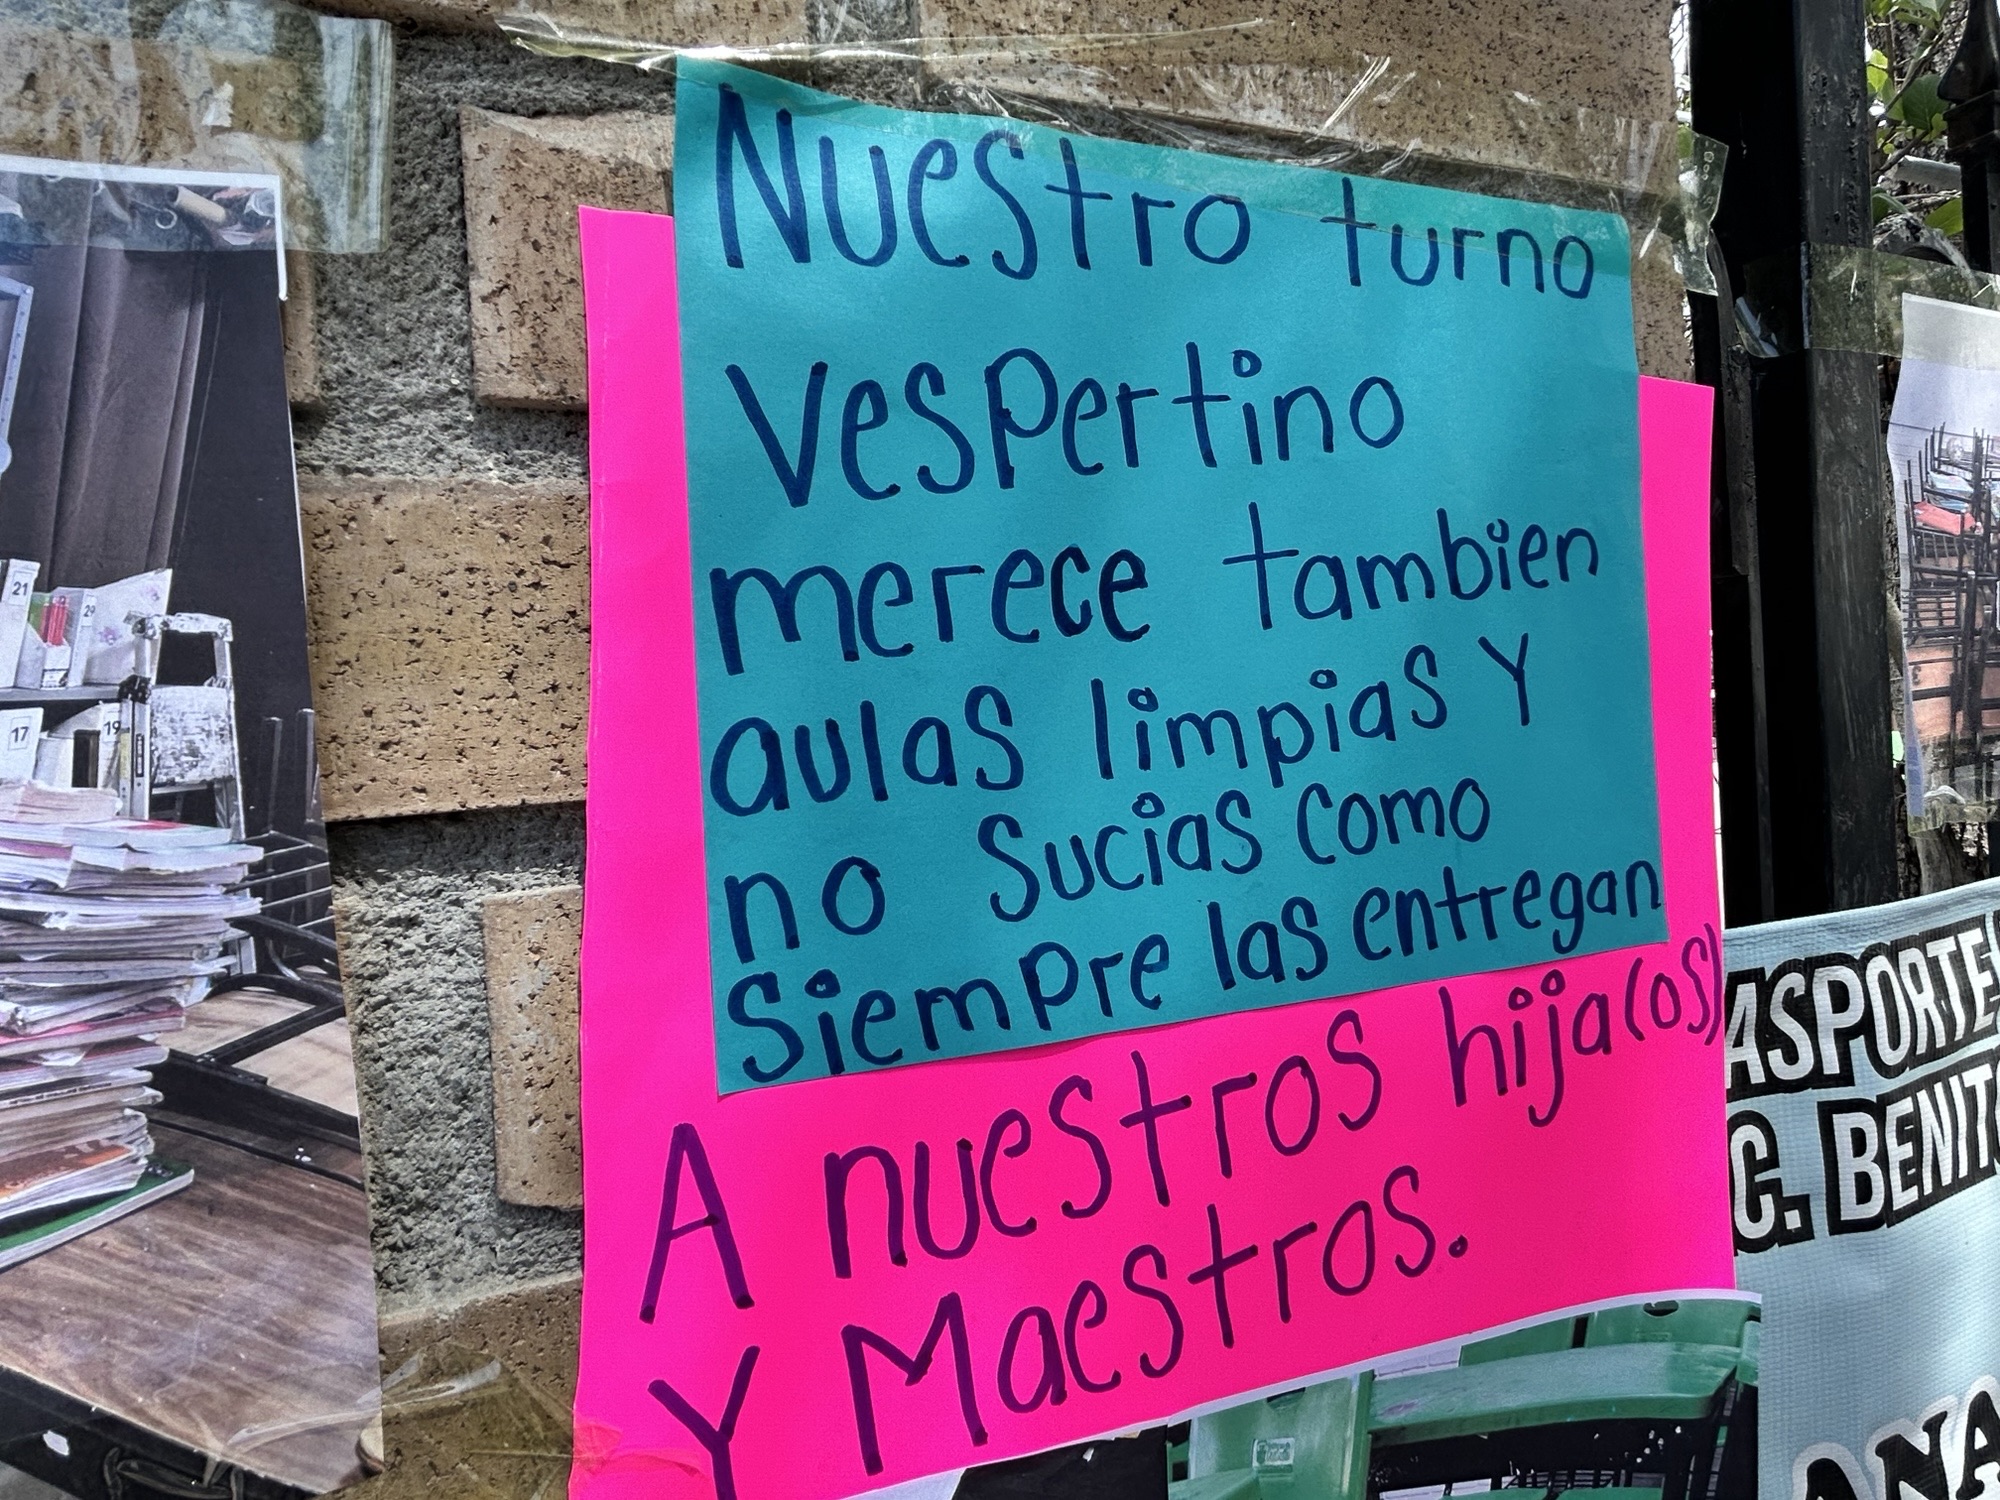 Nuestro turno
Vespertino
merece tambien
aulas limpias Y
no Sucias como
Siempre las entregan
A nuestros hija(os)
Y Maestros.
21
17
19
C. BENITO